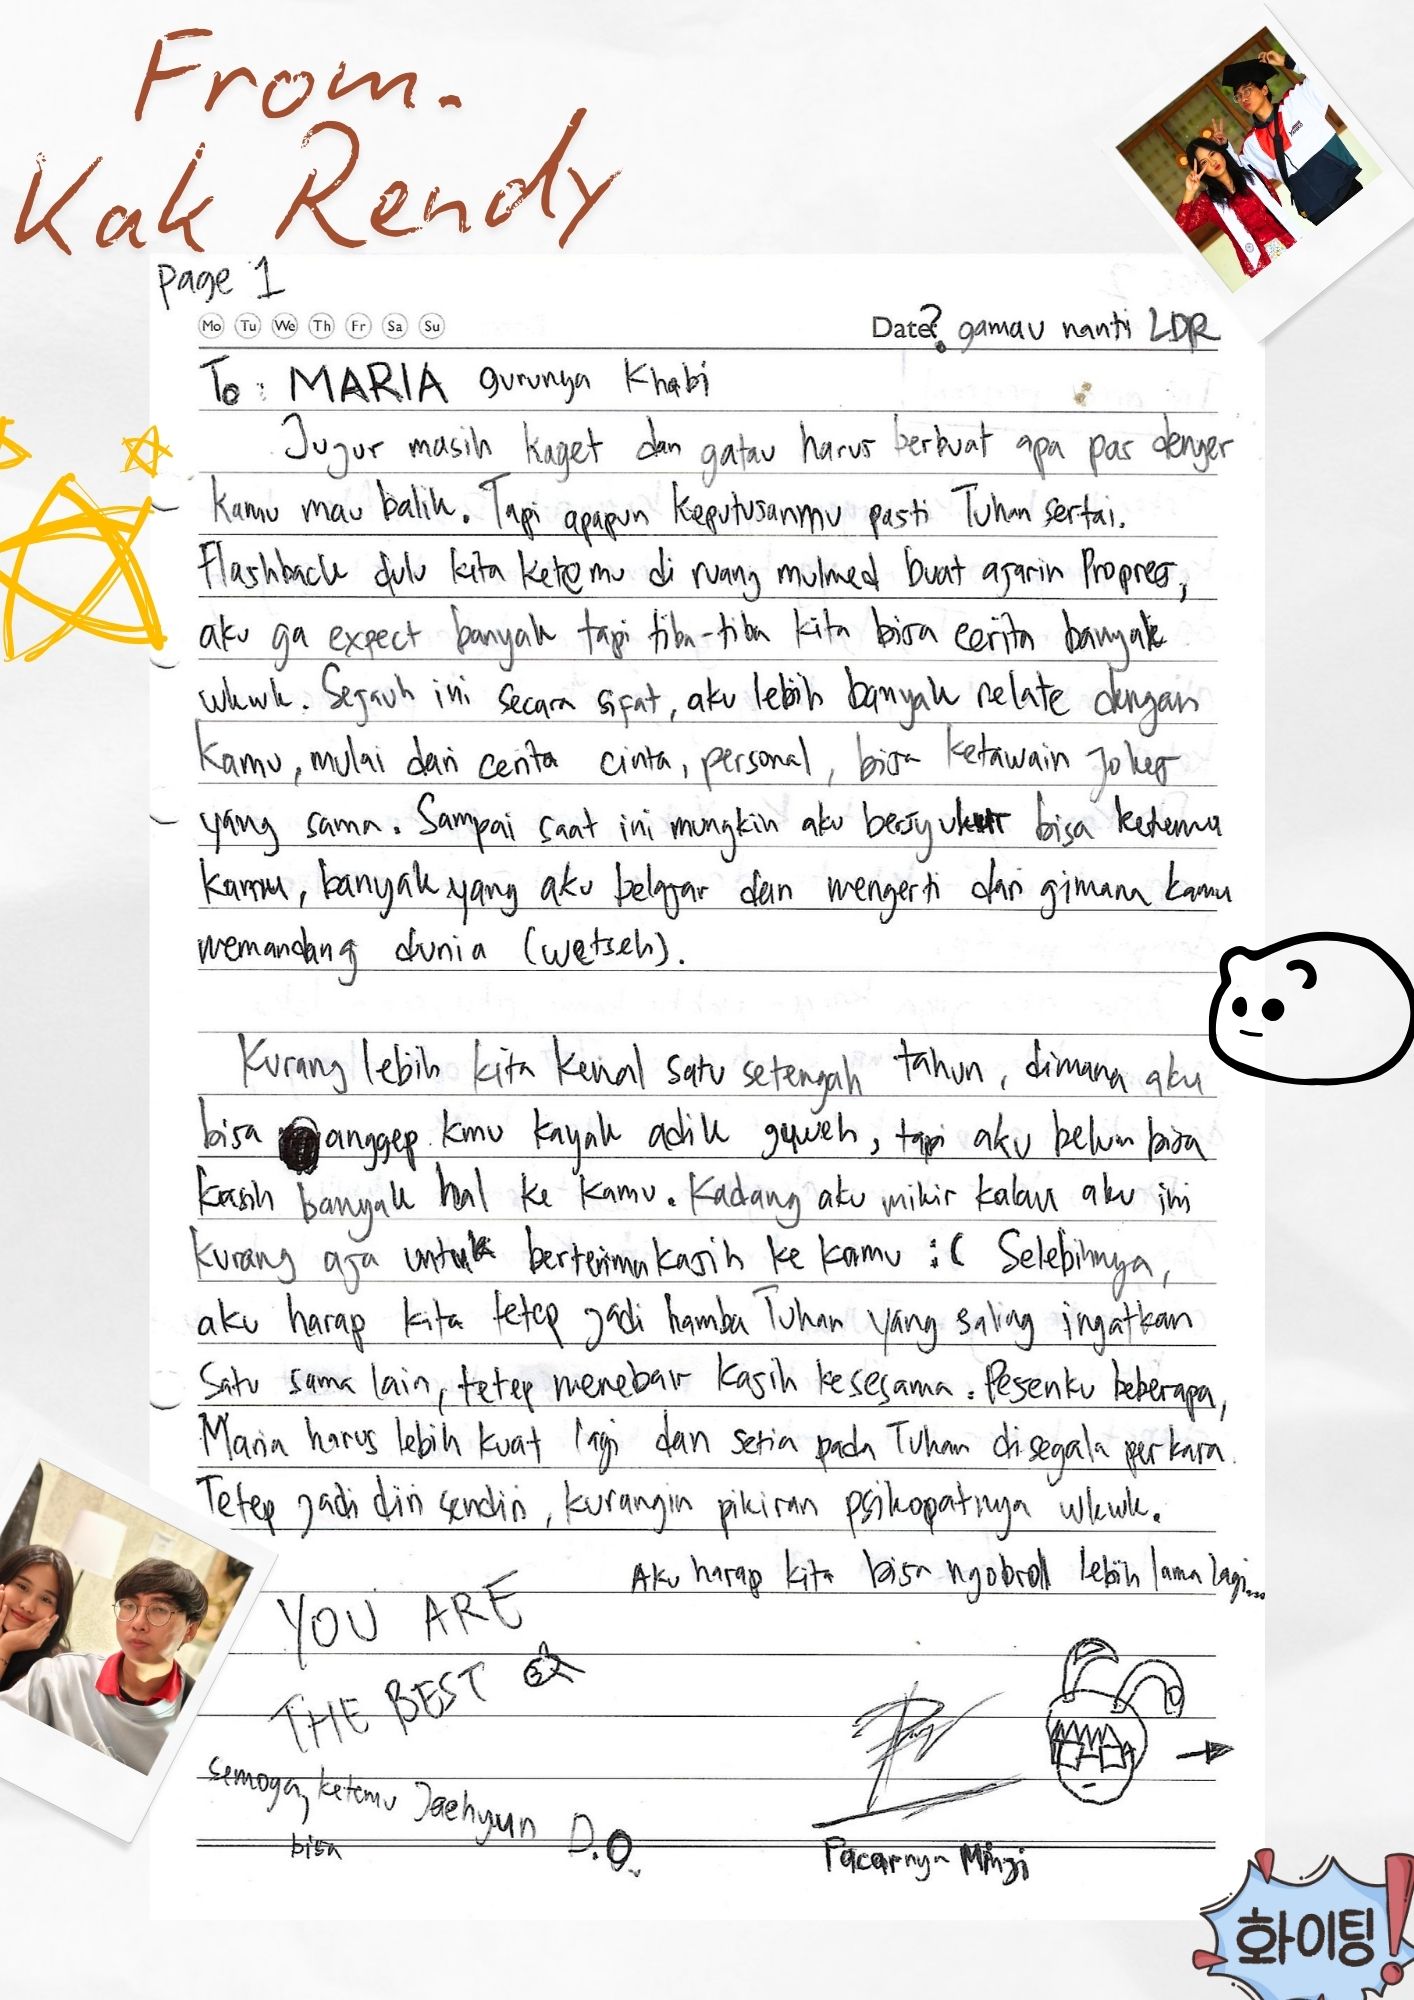 From.
Kak Rendy
page 1
Mo Tu We Th Fr Sa Su
Date? gamau nanti LDR
To : MARIA gurunya Khabi
Jujur masih kaget dan gatau harus berbuat apa pas denger
kamu mau balik. Tapi apapun keputusanmu pasti Tuhan sertai.
Flashback dulu kita ketemu di ruang mulmed buat ajarin Propres,
aku ga expect banyak tapi tiba-tiba kita bisa cerita banyak
wkwk. Sejauh ini secara sifat, aku lebih banyak relate dengan
kamu, mulai dari cerita cinta, personal, bisa ketawain jokes
yang sama. Sampai saat ini mungkin aku bersyukur bisa ketemu
kamu, banyak yang aku belajar dan mengerti dari gimana kamu
memandang dunia (wetseh).
Kurang lebih kita kenal satu setengah tahun, dimana aku
bisa anggep kmu kayak adik guweh, tapi aku belum bisa
kasih banyak hal ke kamu. Kadang aku mikir kalau aku ini
kurang aja untuk berterimakasih ke kamu :( Selebihnya,
aku harap kita tetep jadi hamba Tuhan yang saling ingatkan
satu sama lain, tetep menebar kasih kesesama. Pesenku beberapa,
Maria harus lebih kuat lagi dan setia pada Tuhan disegala perkara.
Tetep jadi diri sendiri, kurangin pikiran psikopatnya wkwk.
Aku harap kita bisa ngobrol lebih lama lagi...
YOU ARE
THE BEST
semoga, ketemu Jaehyun D.O.
bisa
Pacarnya Minji
화이팅!